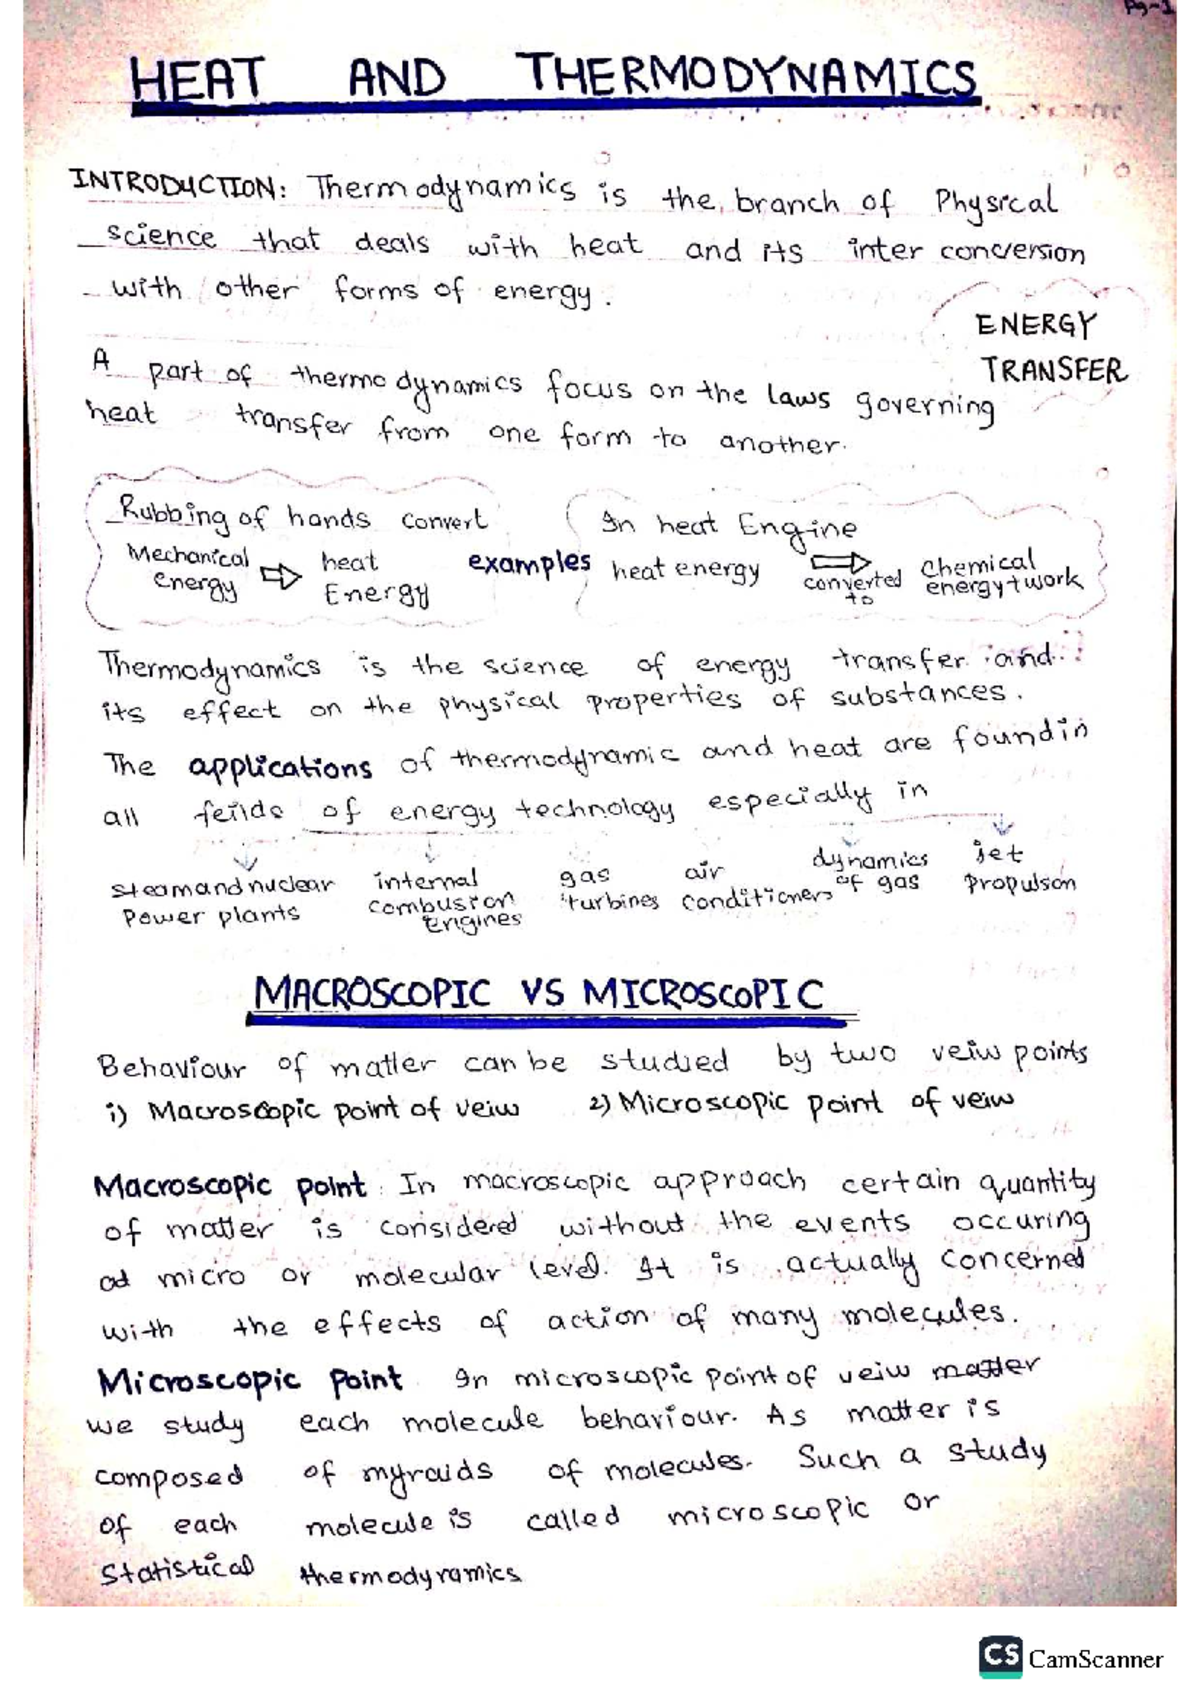 Pg-1
HEAT AND THERMODYNAMICS
INTRODUCTION: Thermodynamics is the branch of Physical
science that deals with heat and its inter conversion
with other forms of energy.
ENERGY
TRANSFER
A part of thermodynamics focus on the laws governing
heat transfer from one form to another.
Rubbing of hands convert
Mechanical energy ⇨ heat Energy
examples
In heat Engine
heat energy ⇨ converted to Chemical energy+work
Thermodynamics is the science of energy transfer and
its effect on the physical properties of substances.
The applications of thermodynamic and heat are found in
all feilds of energy technology especially in
steam and nuclear Power plants
internal combustion Engines
gas turbines
air conditioners
dynamics of gas
jet propulson
MACROSCOPIC VS MICROSCOPIC
Behaviour of matter can be studied by two veiw points
i) Macroscopic point of veiw 2) Microscopic point of veiw
Macroscopic point: In macroscopic approach certain quantity
of matter is considered without the events occuring
ad micro or molecular level. It is actually concerned
with the effects of action of many molecules.
Microscopic point In microscopic point of veiw matter
we study each molecule behaviour. As matter is
composed of myraids of molecules. Such a study
of each molecule is called microscopic or
Statistical thermodynamics
CS CamScanner